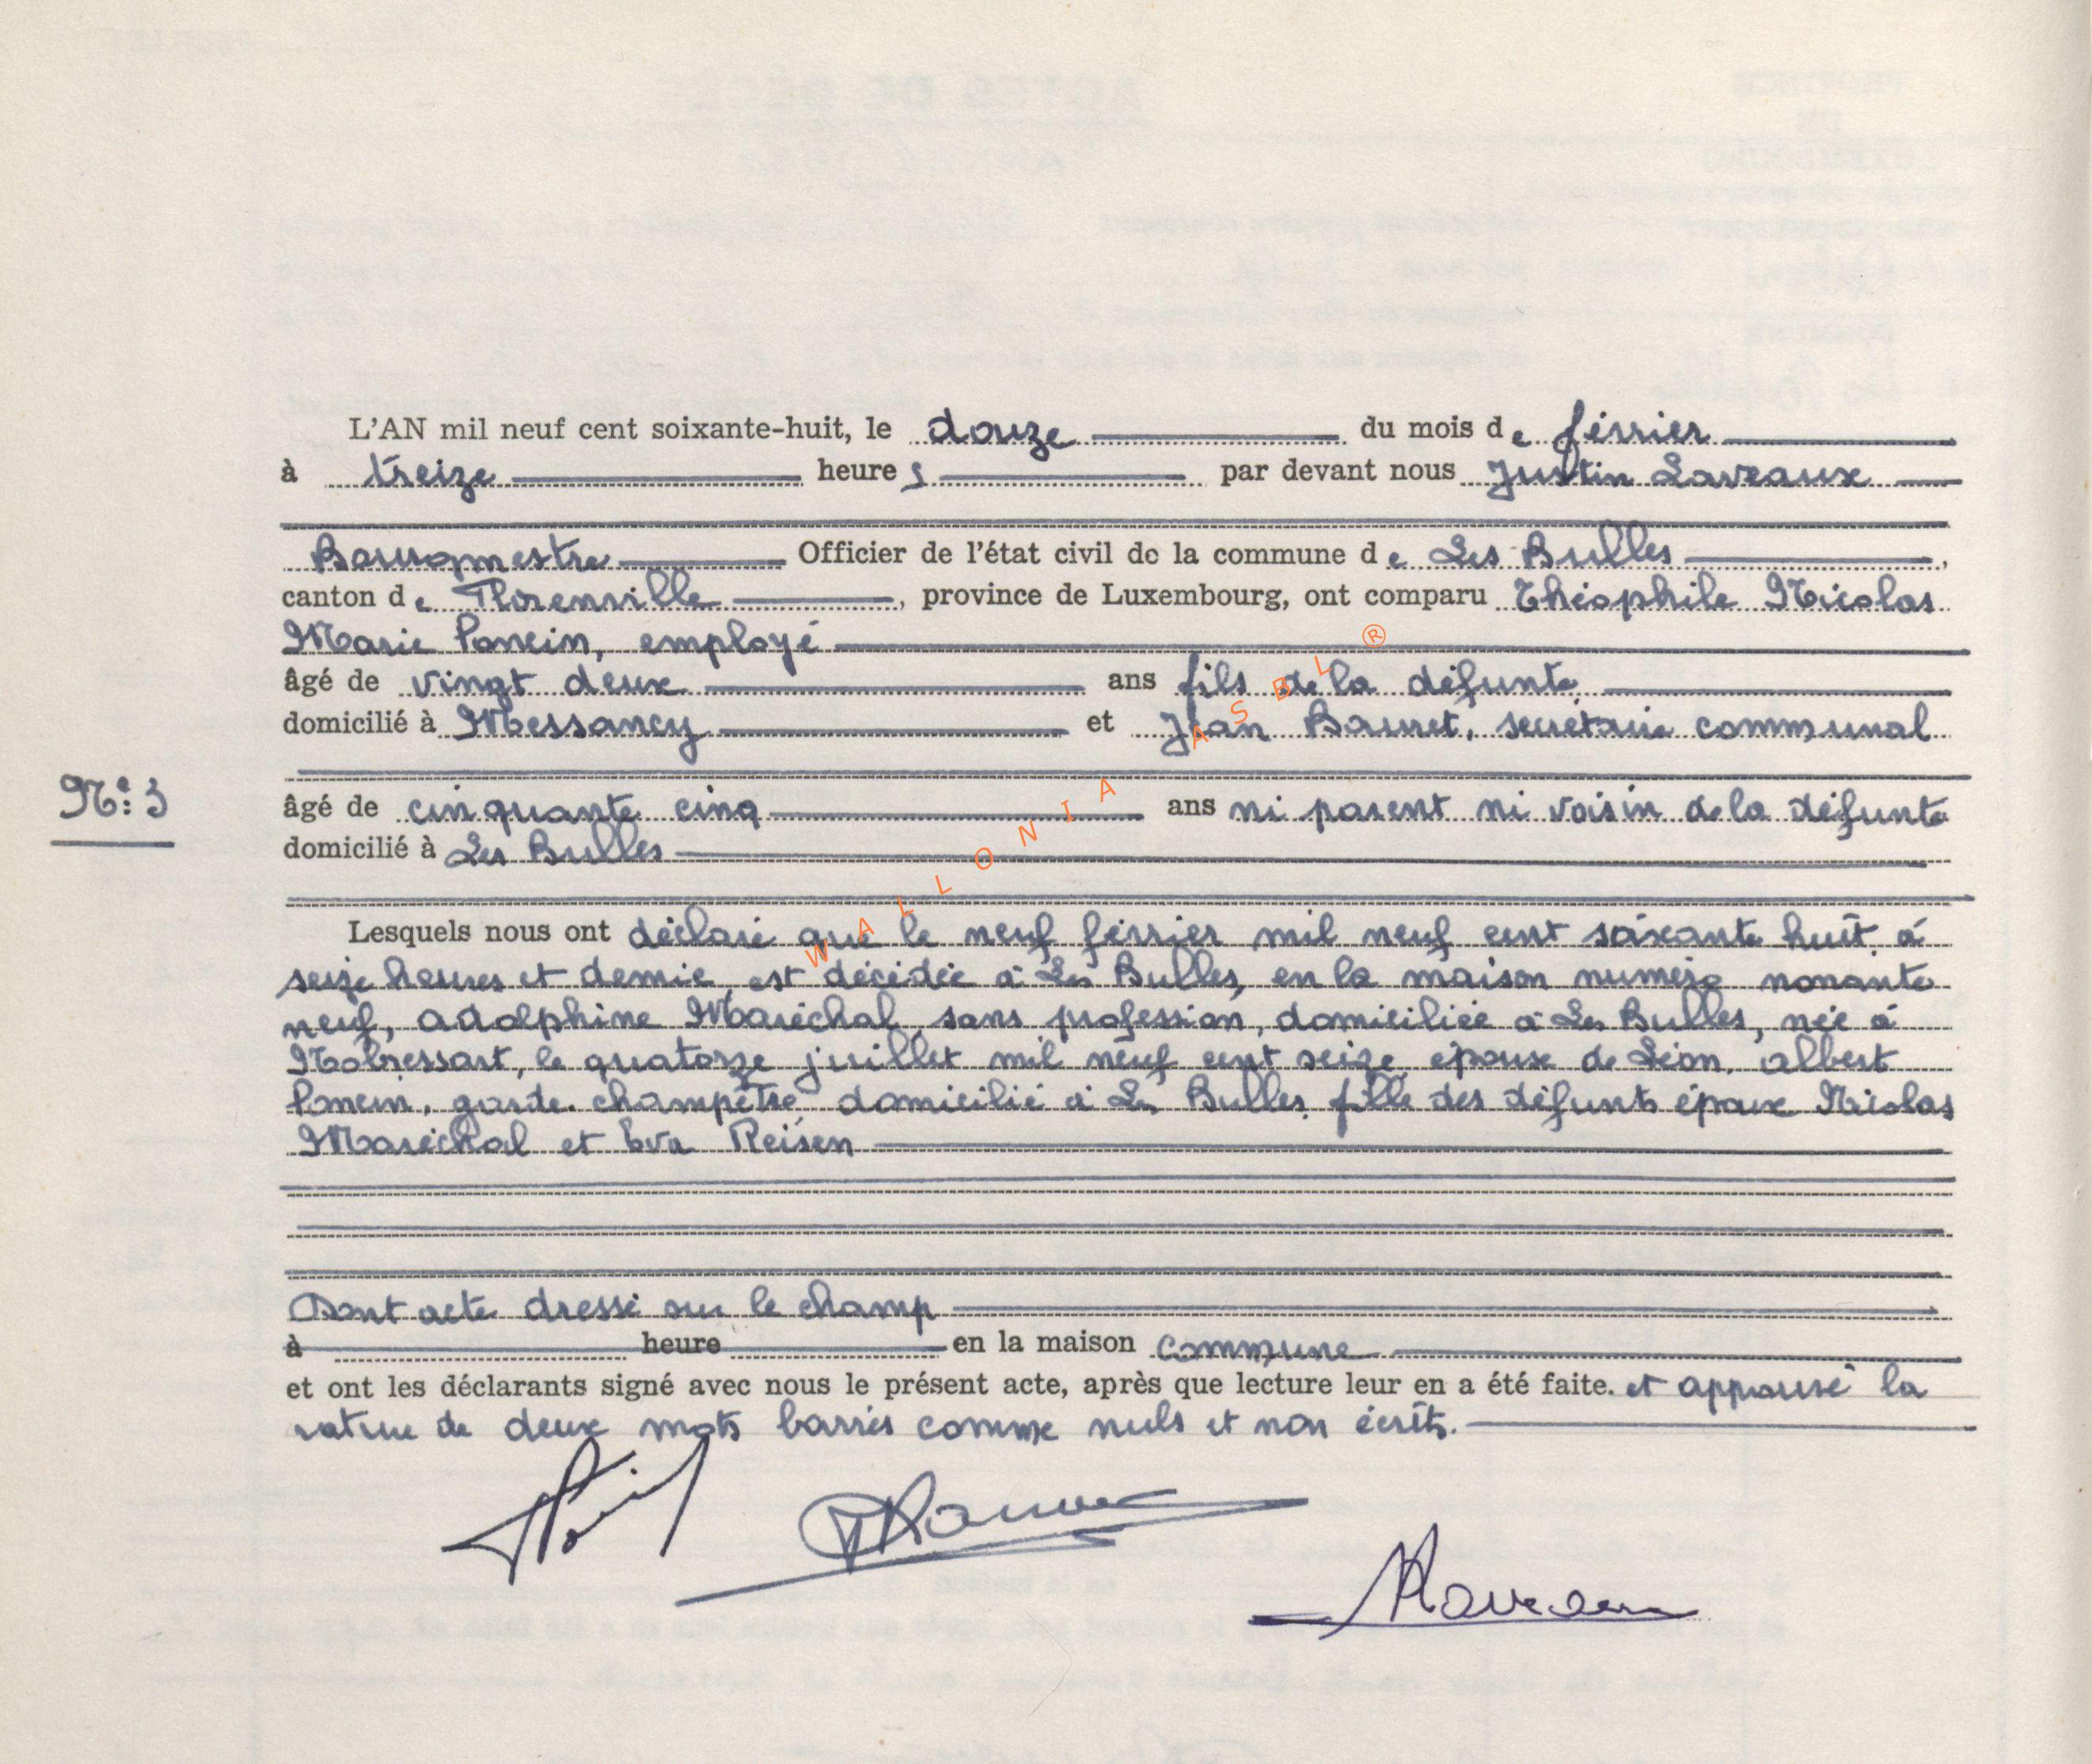 L'AN mil neuf cent soixante-huit, le douze du mois de février
à treize heures par devant nous Justin Laveaux
Bourgmestre Officier de l'état civil de la commune de Les Bulles,
canton de Florenville, province de Luxembourg, ont comparu Théophile Nicolas
Marie Poncin, employé
âgé de vingt deux ans fils de la défunte
domicilié à Messancy et Jean Bauret, secrétaire communal
N°: 3
âgé de cinquante cinq ans ni parent ni voisin de la défunte
domicilié à Les Bulles
Lesquels nous ont déclaré que le neuf février mil neuf cent soixante huit à
seize heures et demie est décédée à Les Bulles, en la maison numéro nonante
neuf, Adolphine Maréchal, sans profession, domiciliée à Les Bulles, née à
Nobressart, le quatorze juillet mil neuf cent seize épouse de Léon Albert
Poncin, garde champêtre domicilié à Les Bulles, fille des défunts époux Nicolas
Maréchal et Eva Reisen
Dont acte dressé sur le champ
à heure en la maison commune
et ont les déclarants signé avec nous le présent acte, après que lecture leur en a été faite. et approuvé la
rature de deux mots barrés comme nuls et non écrits.
WALLONIA ASBL ®